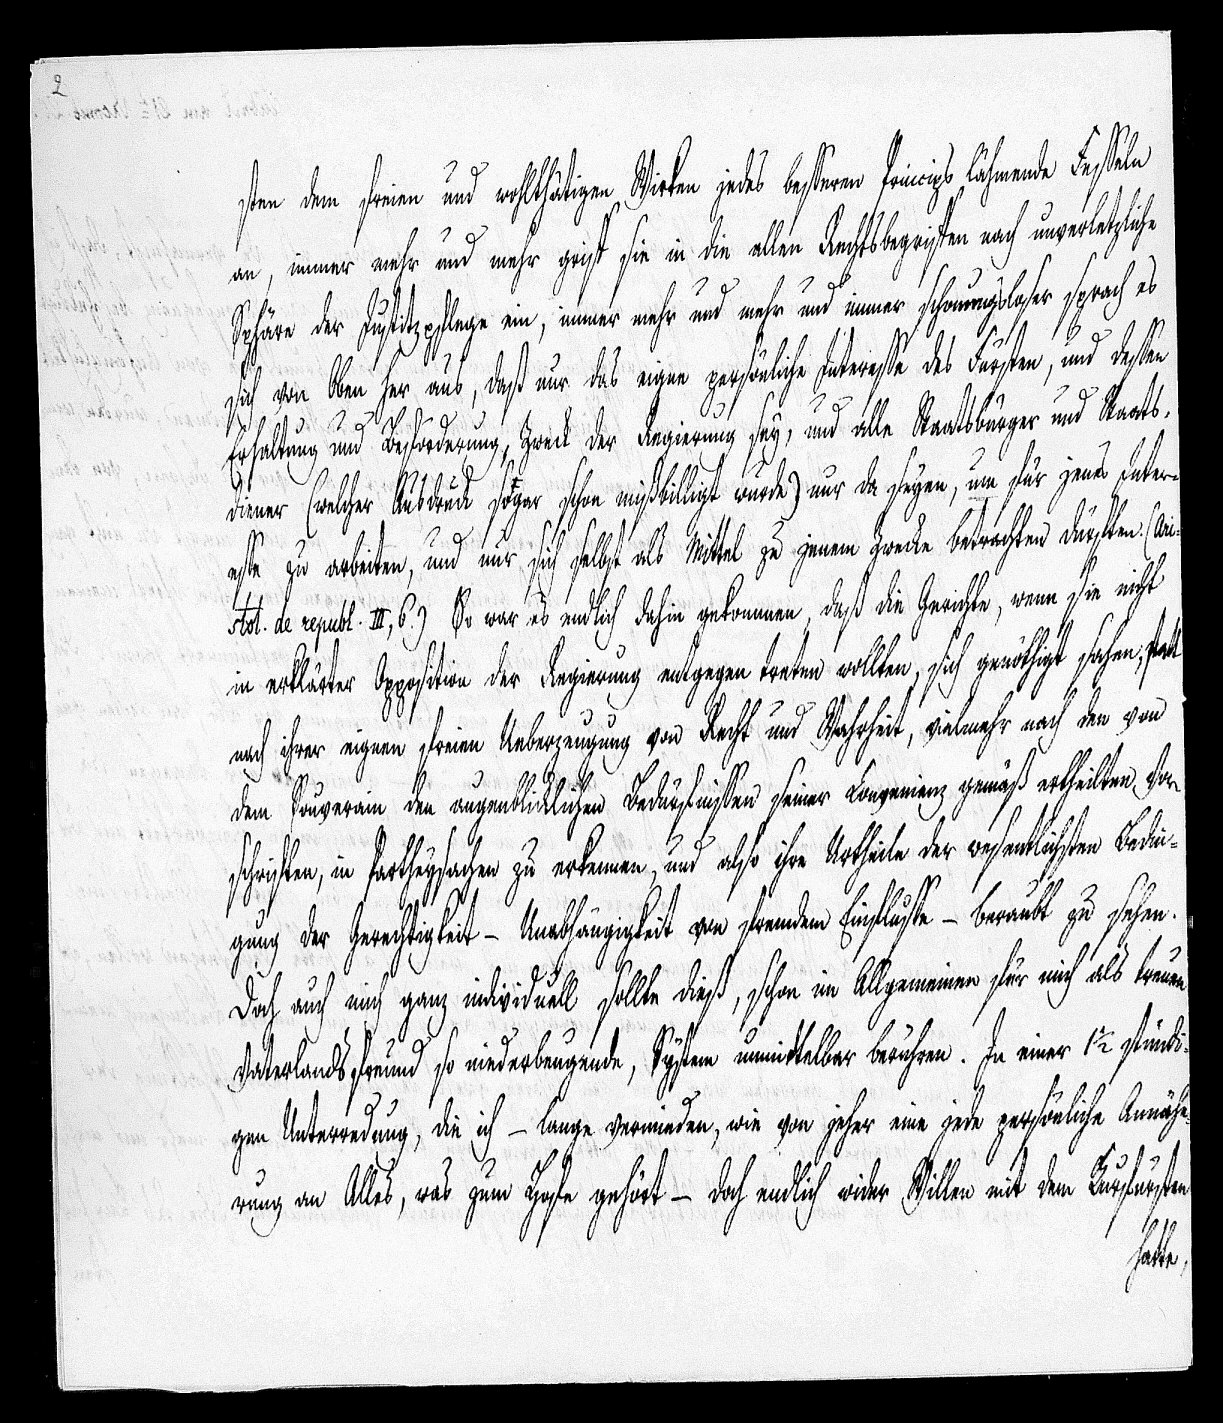 2
sten dem freien und wohlthätigen Wirken jedes besseren Princips lähmende Fesseln
an, immer mehr und mehr griff sie in die allen Rechtsbegriffen nach unverletzliche
Sphäre der Justitzpflege ein, immer mehr und mehr und immer schonungsloser sprach es
sich von Oben her aus, daß nur das eigne persönliche Interesse des Fürsten, und dessen
Erhaltung und Beförderung, Zweck der Regierung sey, und alle Staatsbürger und Staats-
diener (welcher Ausdruck sogar schon mißbilligt wurde) nur da seyen, um für jenes Inter-
esse zu arbeiten, und nur sich selbst als Mittel zu jenem Zwecke betrachten dürften. (Ari-
stot. de republ. III, 6.) So war es endlich dahin gekommen, daß die Gerichte, wenn sie nicht
in erklärter Opposition der Regierung entgegen treten wollten, sich genöthigt sahen, statt
nach ihrer eignen freien Ueberzeugung von Recht und Wahrheit, vielmehr nach den von
dem Souverain den augenblicklichen Bedürfnissen seiner Convenienz gemäß ertheilten Vor-
schriften, in Partheysachen zu erkennen, und also ihre Urtheile der wesentlichsten Bedin-
gung der Gerechtigkeit – Unabhängigkeit von fremdem Einflusse – beraubt zu sehen.
Doch auch mich ganz individuell sollte dieß, schon im Allgemeinen für mich als treuen
Vaterlandsfreund so niederbeugende, System unmittelbar berühren. In einer 1½ stündi-
gen Unterredung, die ich – lange vermieden, wie von jeher eine jede persönliche Annähe-
rung an Alles, was zum Hofe gehört – doch endlich wider Willen mit dem Kurfürsten
hatte,